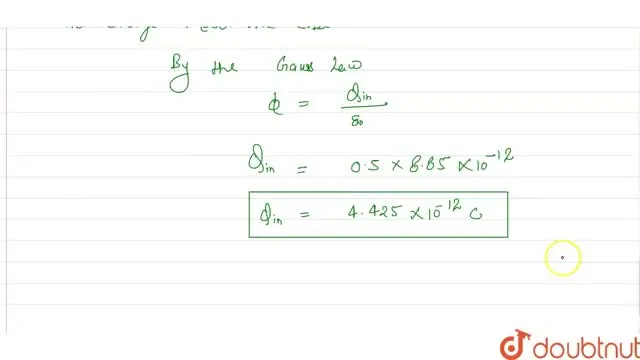 By the Gauss Law
Φ = Qin / ε₀
Qin = 0.5 × 8.85 × 10⁻¹²
Qin = 4.425 × 10⁻¹² C
doubtnut